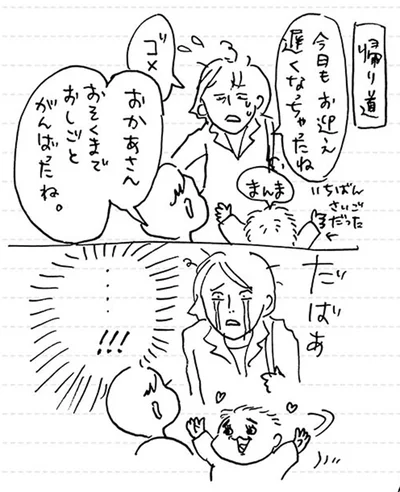 帰り道
今日もお迎え
遅くなっちゃったね
ゴメ
おかあさん
おそくまで
おしごと
がんばったね。
まんま
いちばん
さいご
だった
だばあ
……
!!!